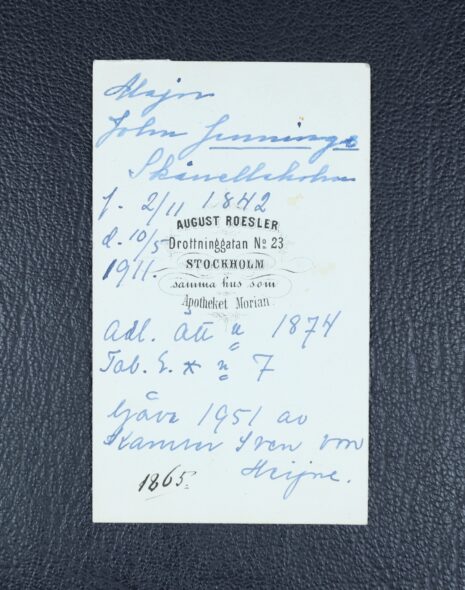 Major
John Jennings
Skånellaholm
f. 2/11 1842
d. 10/5
1911.
AUGUST ROESLER
Drottninggatan No 23
STOCKHOLM
samma hus som
Apotheket Morian
Adl. ätt n 1874
Tab. 6. * n 7
Gåva 1951 av
Kamm Sven von
Heijne.
1865.